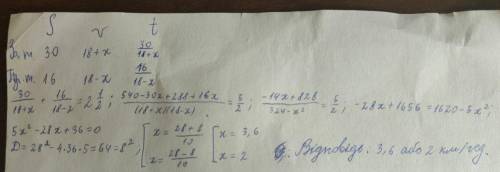 S v t
За т. 30 18+x 30/18+x
Пр. т. 16 18-x 16/18-x
30/18+x + 16/18-x = 2 1/2 ; 540-30x+288+16x/(18+x)(18-x) = 5/2 ; -14x+828/324-x² = 5/2 ; -28x+1656=1620-5x² ;
5x²-28x+36=0
D=28²-4·36·5=64=8² ; [x = 28+8/10 x = 28-8/10 [x = 3,6 x = 2 Відповідь. 3,6 або 2 км/год.